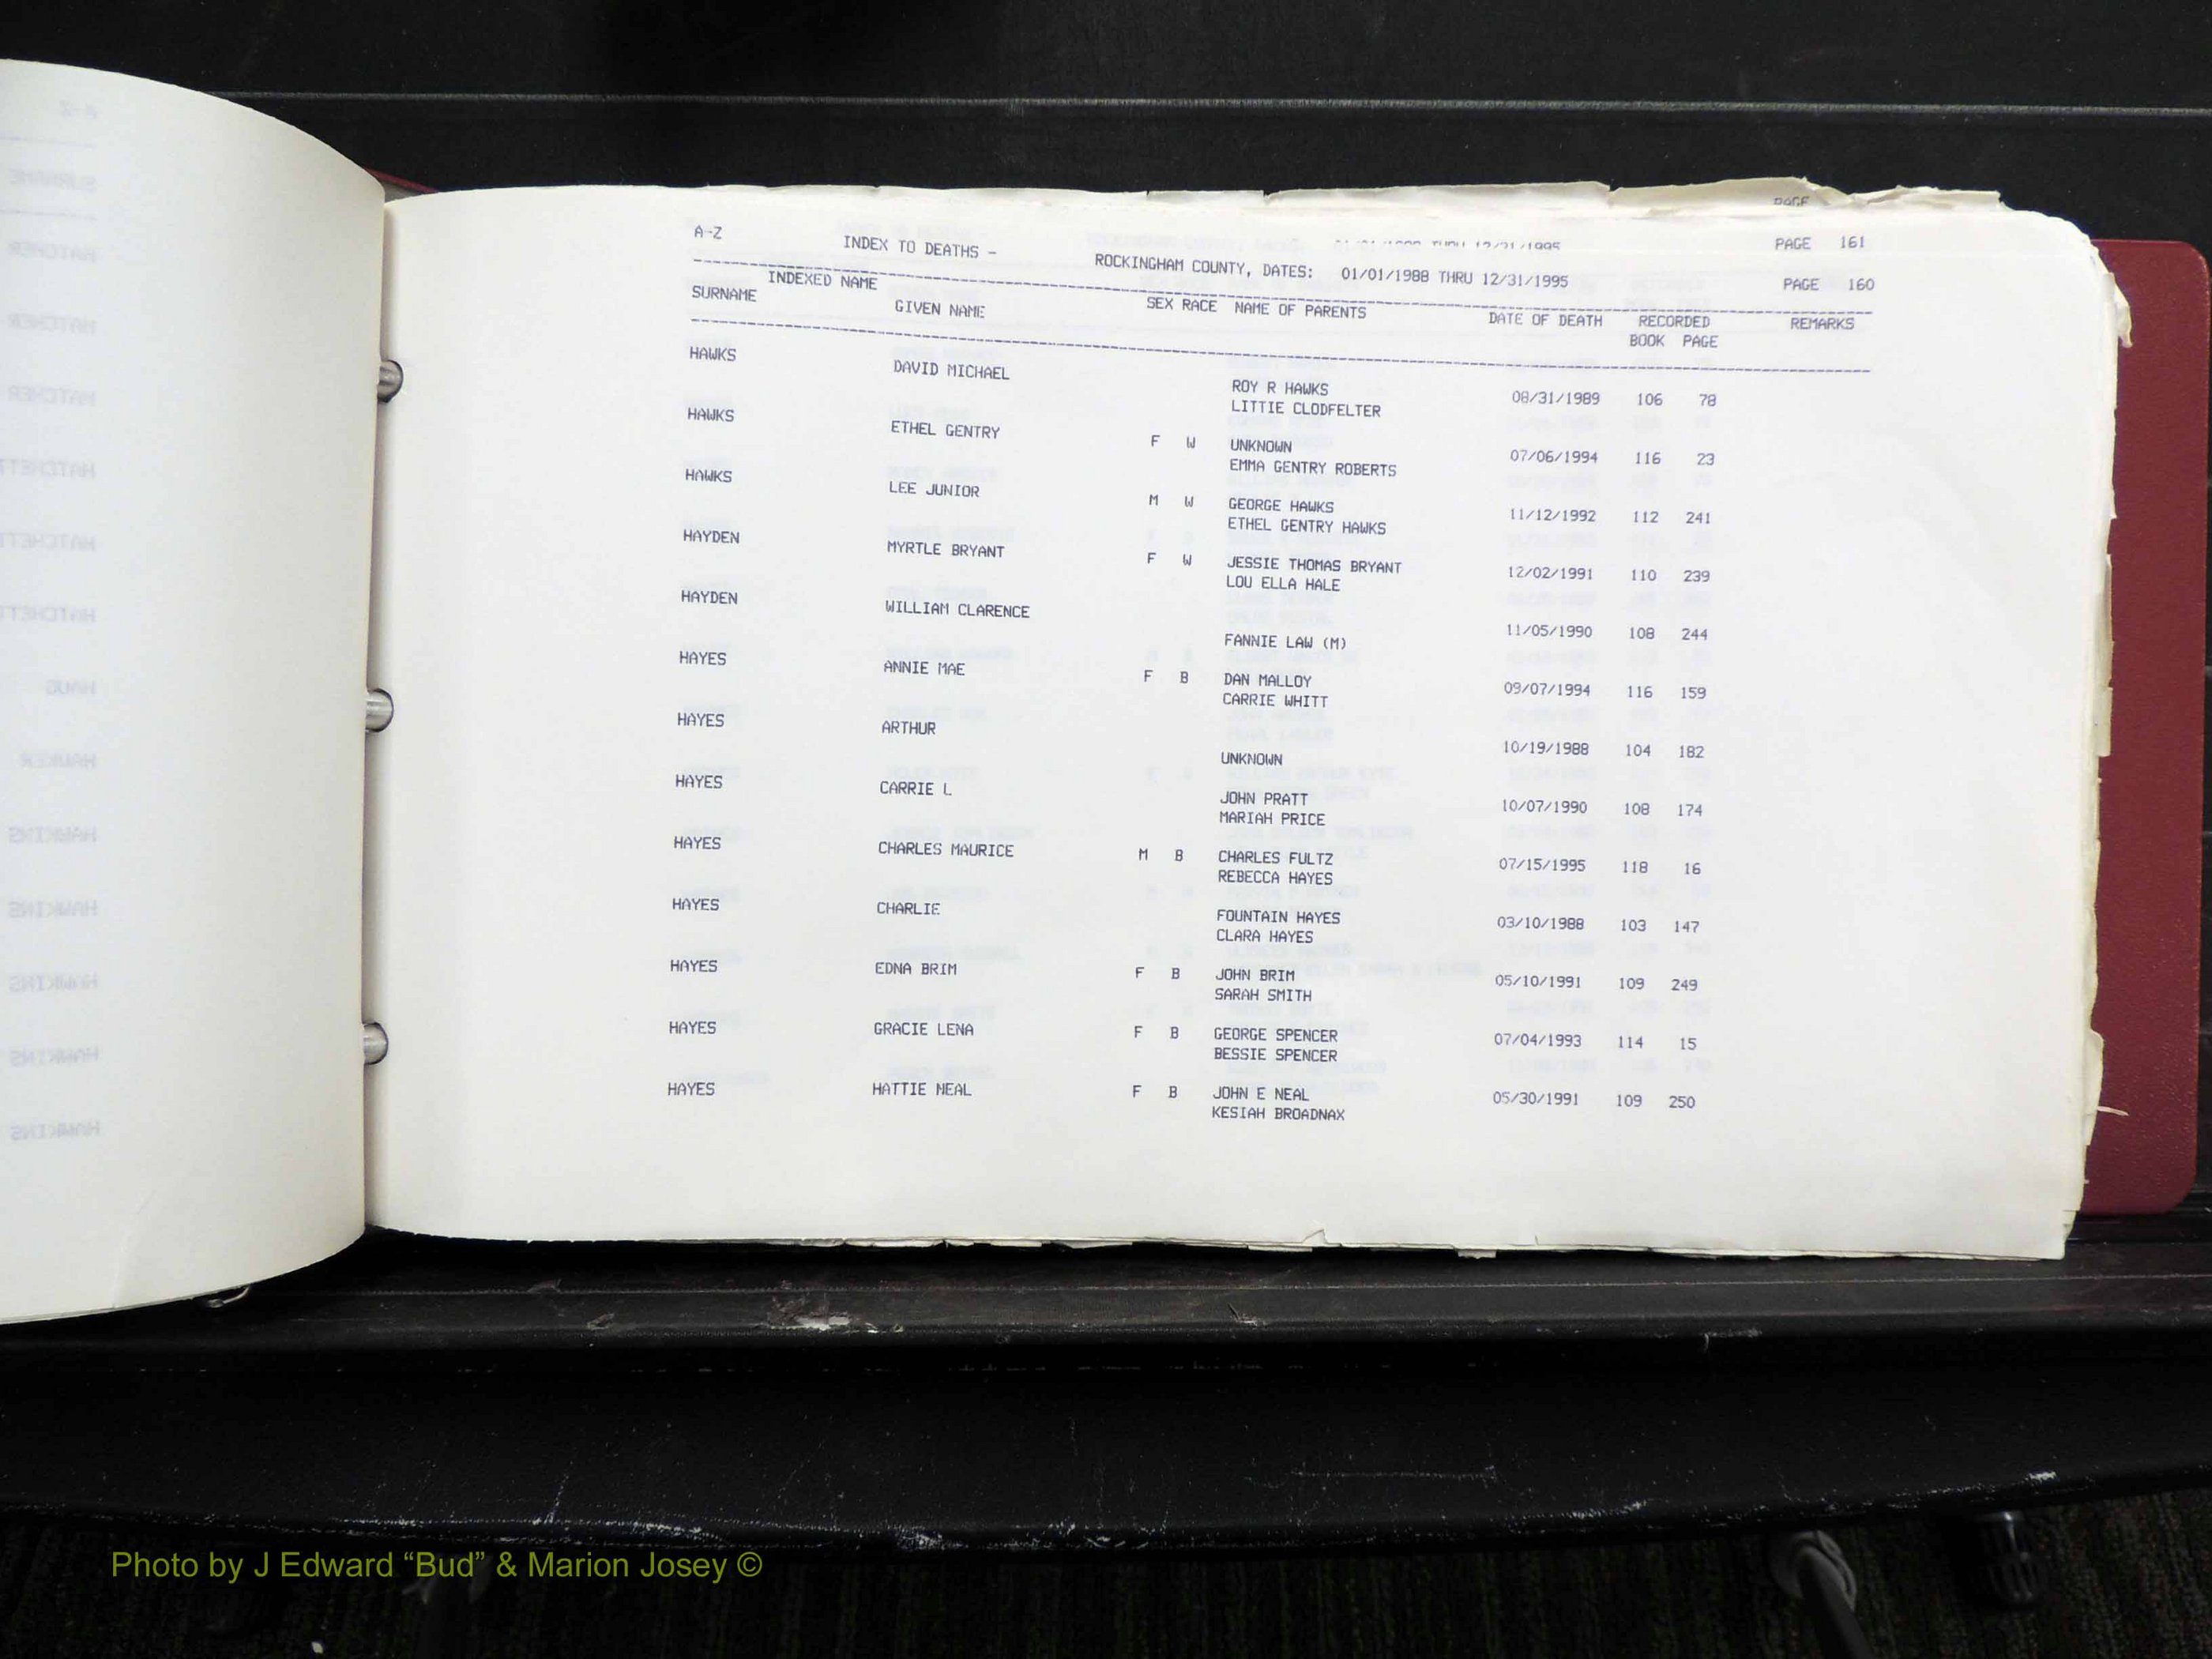 PAGE
A-Z 01/01/1988 THRU 12/31/1995 PAGE 161
INDEX TO DEATHS - ROCKINGHAM COUNTY, DATES: 01/01/1988 THRU 12/31/1995 PAGE 160
INDEXED NAME
SURNAME GIVEN NAME SEX RACE NAME OF PARENTS DATE OF DEATH RECORDED REMARKS
BOOK PAGE
HAWKS DAVID MICHAEL ROY R HAWKS 08/31/1989 106 78
LITTIE CLODFELTER
HAWKS ETHEL GENTRY F W UNKNOWN 07/06/1994 116 23
EMMA GENTRY ROBERTS
HAWKS LEE JUNIOR M W GEORGE HAWKS 11/12/1992 112 241
ETHEL GENTRY HAWKS
HAYDEN MYRTLE BRYANT F W JESSIE THOMAS BRYANT 12/02/1991 110 239
LOU ELLA HALE
HAYDEN WILLIAM CLARENCE 11/05/1990 108 244
FANNIE LAW (M)
HAYES ANNIE MAE F B DAN MALLOY 09/07/1994 116 159
CARRIE WHITT
HAYES ARTHUR 10/19/1988 104 182
UNKNOWN
HAYES CARRIE L JOHN PRATT 10/07/1990 108 174
MARIAH PRICE
HAYES CHARLES MAURICE M B CHARLES FULTZ 07/15/1995 118 16
REBECCA HAYES
HAYES CHARLIE FOUNTAIN HAYES 03/10/1988 103 147
CLARA HAYES
HAYES EDNA BRIM F B JOHN BRIM 05/10/1991 109 249
SARAH SMITH
HAYES GRACIE LENA F B GEORGE SPENCER 07/04/1993 114 15
BESSIE SPENCER
HAYES HATTIE NEAL F B JOHN E NEAL 05/30/1991 109 250
KESIAH BROADNAX
Photo by J Edward “Bud” & Marion Josey ©